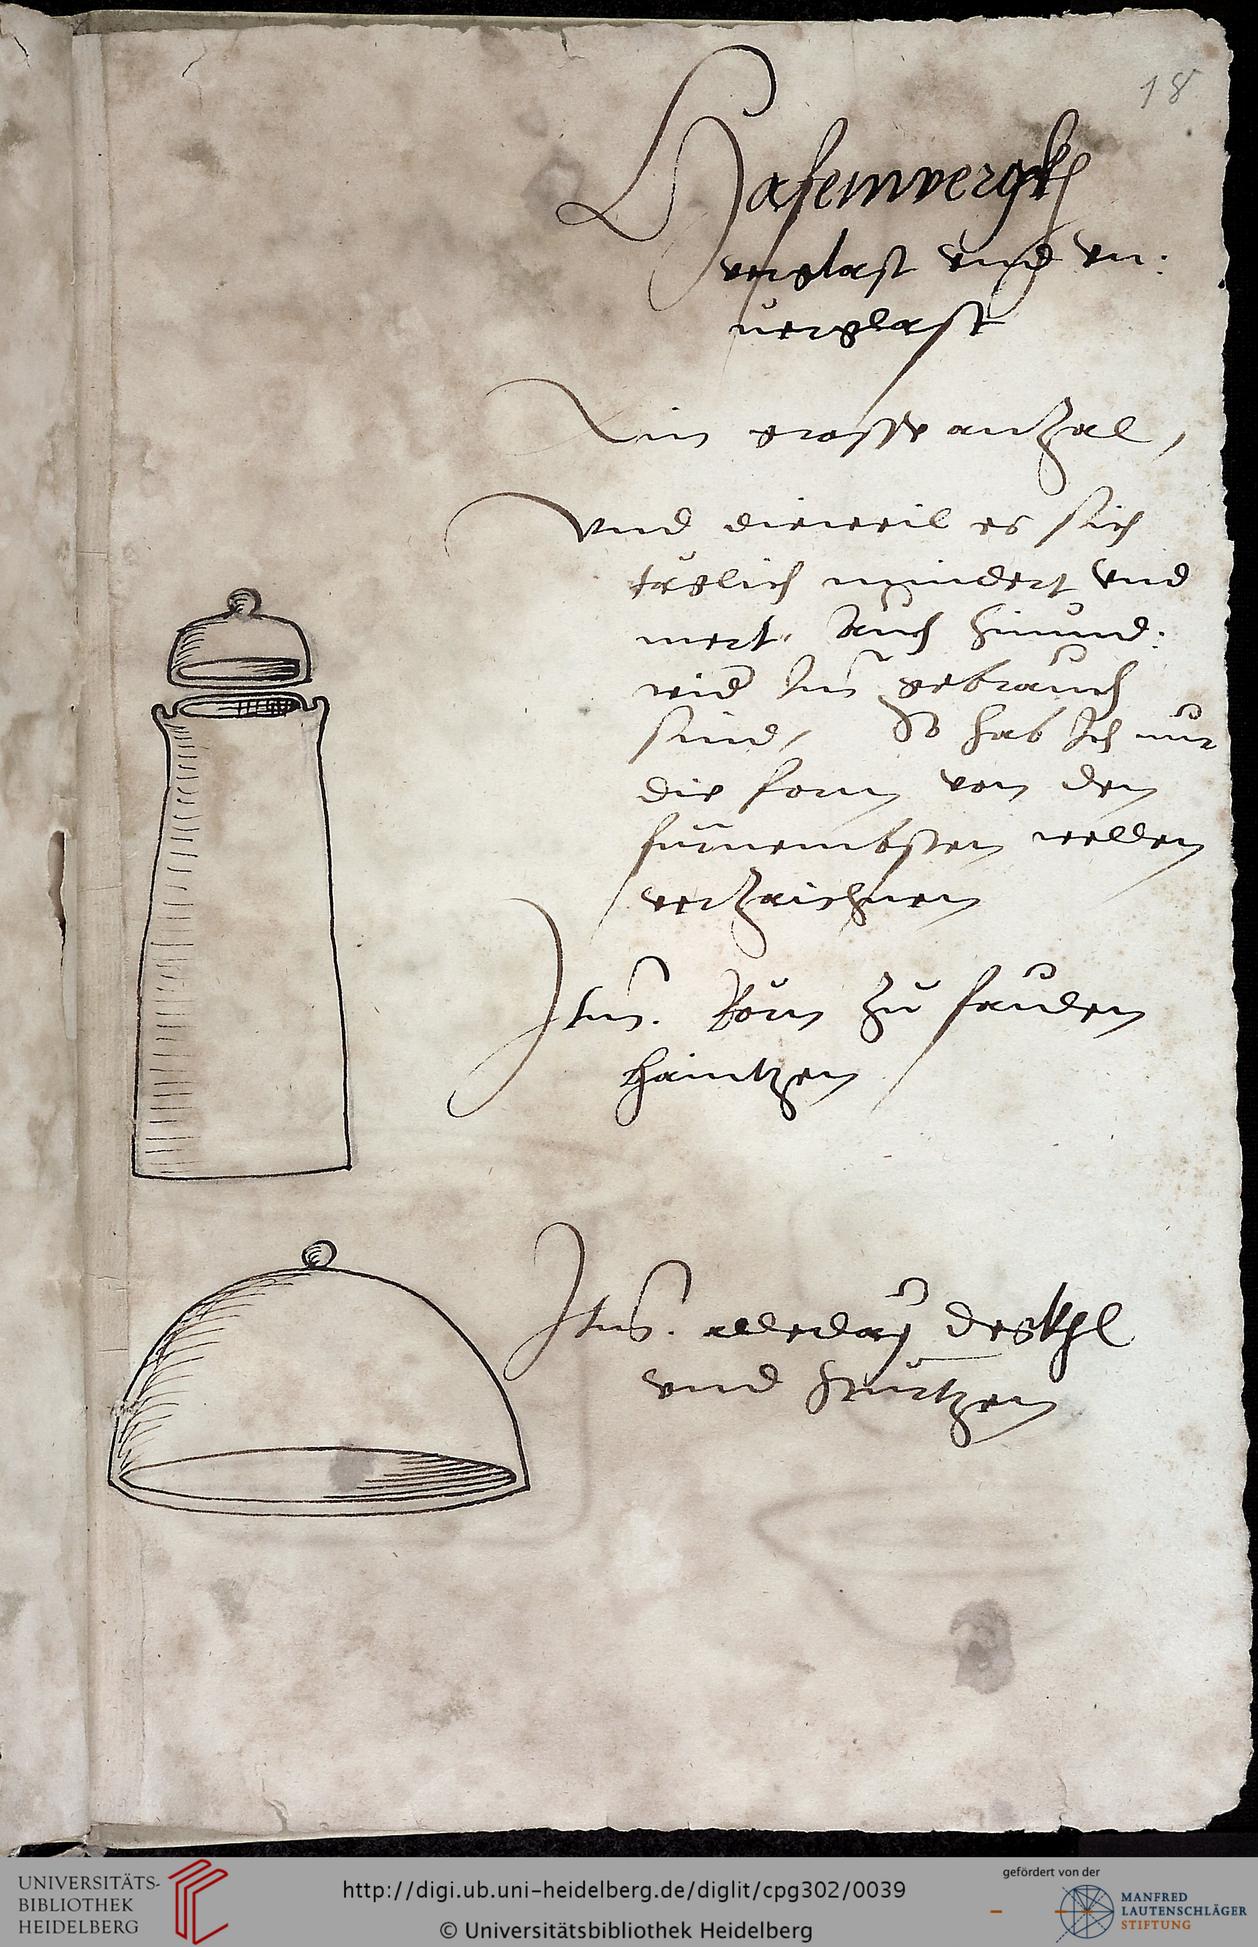 18
Hafennwergk
verglast vnd vn:
uerglast
Ein grosse anzal,
vnd dieweil es sich
täglich mindert vnd
mert. Auch hinund:
wid Im gebrauch
sind, So hab Ich nur
die form von den
fürnembsten wellen
verzaichnen
Item. Rörn zu faulen
haintzen
Item. allerlay deckhl
vnd Sturtzen
UNIVERSITÄTS-
BIBLIOTHEK
HEIDELBERG
http://digi.ub.uni-heidelberg.de/diglit/cpg302/0039
© Universitätsbibliothek Heidelberg
gefördert von der
MANFRED
LAUTENSCHLÄGER
STIFTUNG